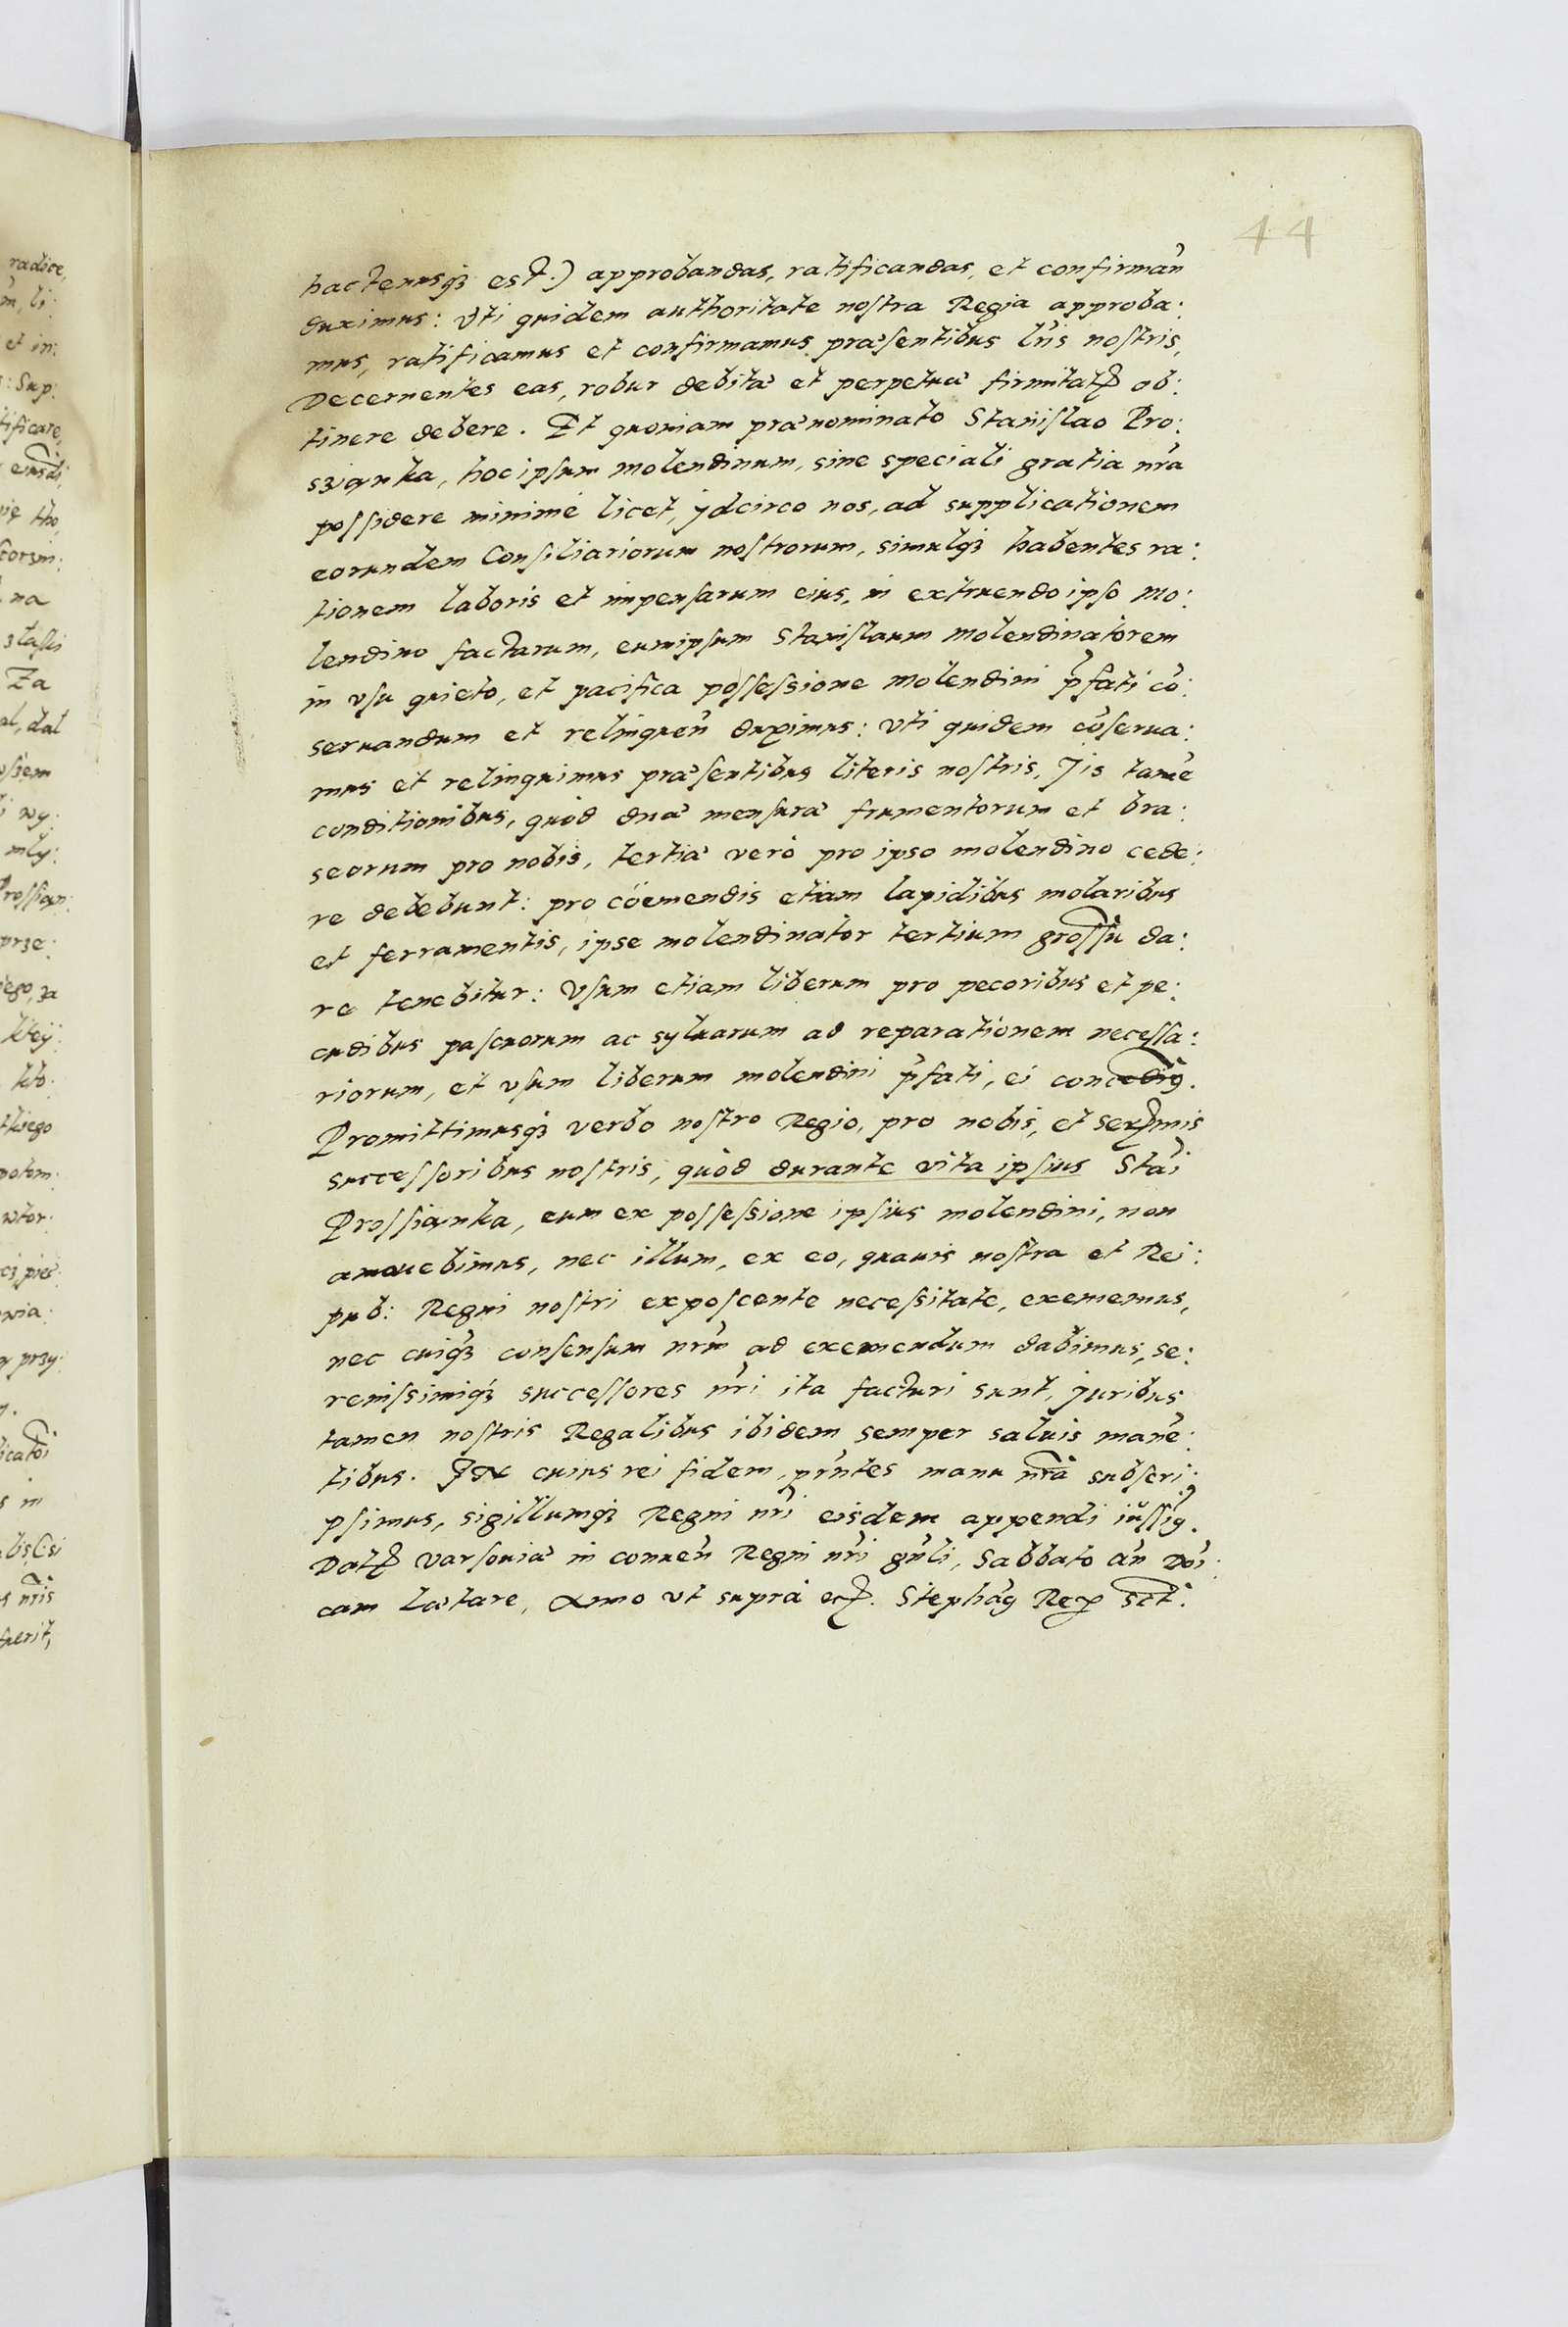 44
hactenusq₃ est.) approbandas, ratificandas, et confirmañ
duximus: Vti quidem authoritate nostra Regia approba:
mus, ratificamus et confirmamus præsentibus lr̃is nostris,
Decernentes eas, robur debitæ et perpetuæ firmitatꝭ ob:
tinere debere. Et quoniam prænominato Stanislao Pro:
szianka, hoc ipsum molendinum, sine speciali gratia nr̃a
possidere minimè licet, ydcirco nos, ad supplicationem
eorundem Consiliariorum nostrorum, simulq₃ habentes ra:
tionem laboris et impensarum eius, in extruendo ipso mo:
lendino factarum, eumipsum Stanislaum molendinatorem
in vsu quieto, et pacifica possessione molendini p̃fati cõ:
seruandum et relinqueñ duximus: Vti quidem cõserua:
mus et relinquimus præsentibus literis nostris, Jis tamẽ
conditionibus, quòd duæ mensuræ frumentorum et bra:
seorum pro nobis, tertia verò pro ipso molendino cede:
re debebunt: pro cöemendis etiam lapidibus molaribus
et ferramentis, ipse molendinator tertium grossũ da:
re tenebitur: Vsum etiam liberum pro pecoribus et pe:
cudibus pascuorum ac syluarum ad reparationem necessa:
riorum, et vsum liberum molendini p̃fati, ei concedimꝯ.
Promittimusq₃ verbo nostro Regio, pro nobis, et Serꝭmis
successoribus nostris, quòd durante vita ipsius Stãi
Prossianka, eum ex possessione ipsius molendini, non
amouebimus, nec illum, ex eo, quauis nostra et Rei:
pub: Regni nostri exposcente necessitate, exememus,
nec cuiq₃ consensum nrm̃ ad exemendum dabimus, se:
renissimiq₃ successores nr̃i ita facturi sunt, juribus
tamen nostris Regalibus ibidem semper saluis manẽ:
tibus. IN cuius rei fidem, prñtes manu nr̃a subscri:
psimus, sigillumq₃ Regni nr̃i eisdem appendi iussimꝯ.
Datꝭ Varsouiæ in conueñ Regni nr̃i gñli, Sabbato añ Doi:
cam Lætare, Anno vt supra ecꝭ. Stephãꝯ Rex sst.